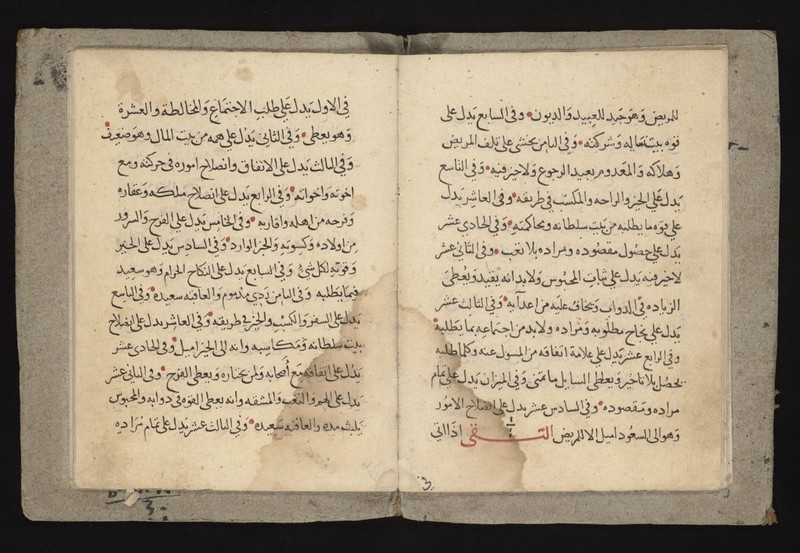 للمريض وهو جيد للعبيد والديون وفى السابع يدل على
قوه بيت ماله وشركته وفى الثامن يخشى على تلف المريض
وهلاكه والمعدوم بعيد الرجوع ولا خير فيه وفى التاسع
يدل على الخير والراحه والمكسب فى طريقه وفى العاشر يدل
على قوه ما يطلبه من بيت سلطانه ومحاكمته وفى الحادى عشر
يدل على حصول مقصوده ومراده بلا تعب وفى الثانى عشر
لا خير فيه يدل على ثبات المحبوس ولا بد انه يقيد ويعطى
الزياده فى الدواب ويخاف عليه من اعدايه وفى الثالث عشر
يدل على نجاح مطلوبه ومراده ولا بد من اجتماعه بما يطلبه
وفى الرابع عشر يدل على علامة اتفاقه من المسول عنه وكلما طلبه
يحصل بلا تاخير ويعطى السايل ما تمنى وفى الميزان يدل على تمام
مراده ومقصوده وفى السادس عشر يدل على انصلاح الامور
وهو الى السعود اميل الا للمريض التقى اذا اتى
فى الاول يدل على طلب الاجتماع والمخالطة والعشرة
وهو يعطى وفى الثانى يدل على همه من بيت المال وهو ضعيف
وفى الثالث يدل على الاتفاق وانصلاح اموره فى حركته ومع
اخوته واخواته وفى الرابع يدل على انصلاح ملكه وعقاره
وفرحه من اهله واقاربه وفى الخامس يدل على الفرح والسرور
من اولاده وكسوته والخير الوارد وفى السادس يدل على الخير
وقوته لكل شئ وفى السابع يدل على النكاح الحرام وهو سعيد
فيما يطلبه وفى الثامن ردى مذموم والعاقبه سعيده وفى التاسع
يدل على السفر والكسب والخير فى طريقه وفى العاشر يدل على انصلاح
بيت سلطانه ومكاسبه وانه الى الخير اميل وفى الحادى عشر
يدل على اتفاقه مع أصحابه ولمن يختاره ويعطى الفرح وفى الثانى عشر
يدل على والتعب والمشقه وانه يعطى القوه فى دوابه والمحبوس
يلبث مده والعاقبه سعيده وفى الثالث عشر يدل على تمام مراده